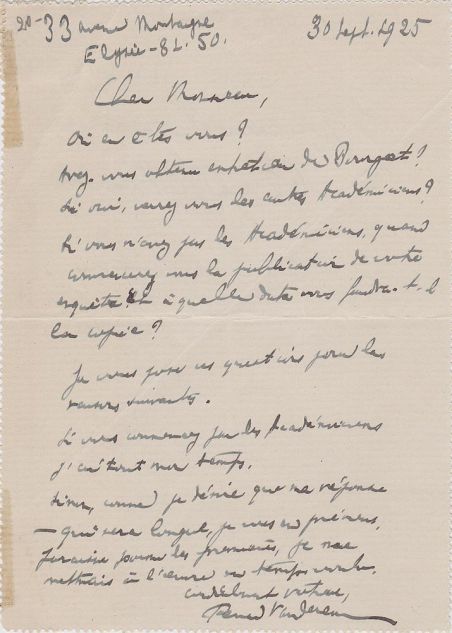 33 avenue Montaigne 30 Sept. 1925
Elysée - 82. 50.
Cher Monsieur,
Où en êtes vous ?
Avez-vous obtenu entretien de Bourget ?
Si oui, verrez vous les autres Académiciens ?
Si vous n'avez pas les Académiciens, quand
commencerez vous la publication de votre
enquête et à quelle date vous faudra-t-il
la copie ?
Je vous pose ces questions pour les
raisons suivantes.
Si vous commencez par les Académiciens
j'ai tout mon temps.
Sinon, comme je désire que ma réponse
— qui sera longue, je vous en préviens,
paraisse parmi les premières, je me
mettrais à l'œuvre en temps voulu.
cordialement votre,